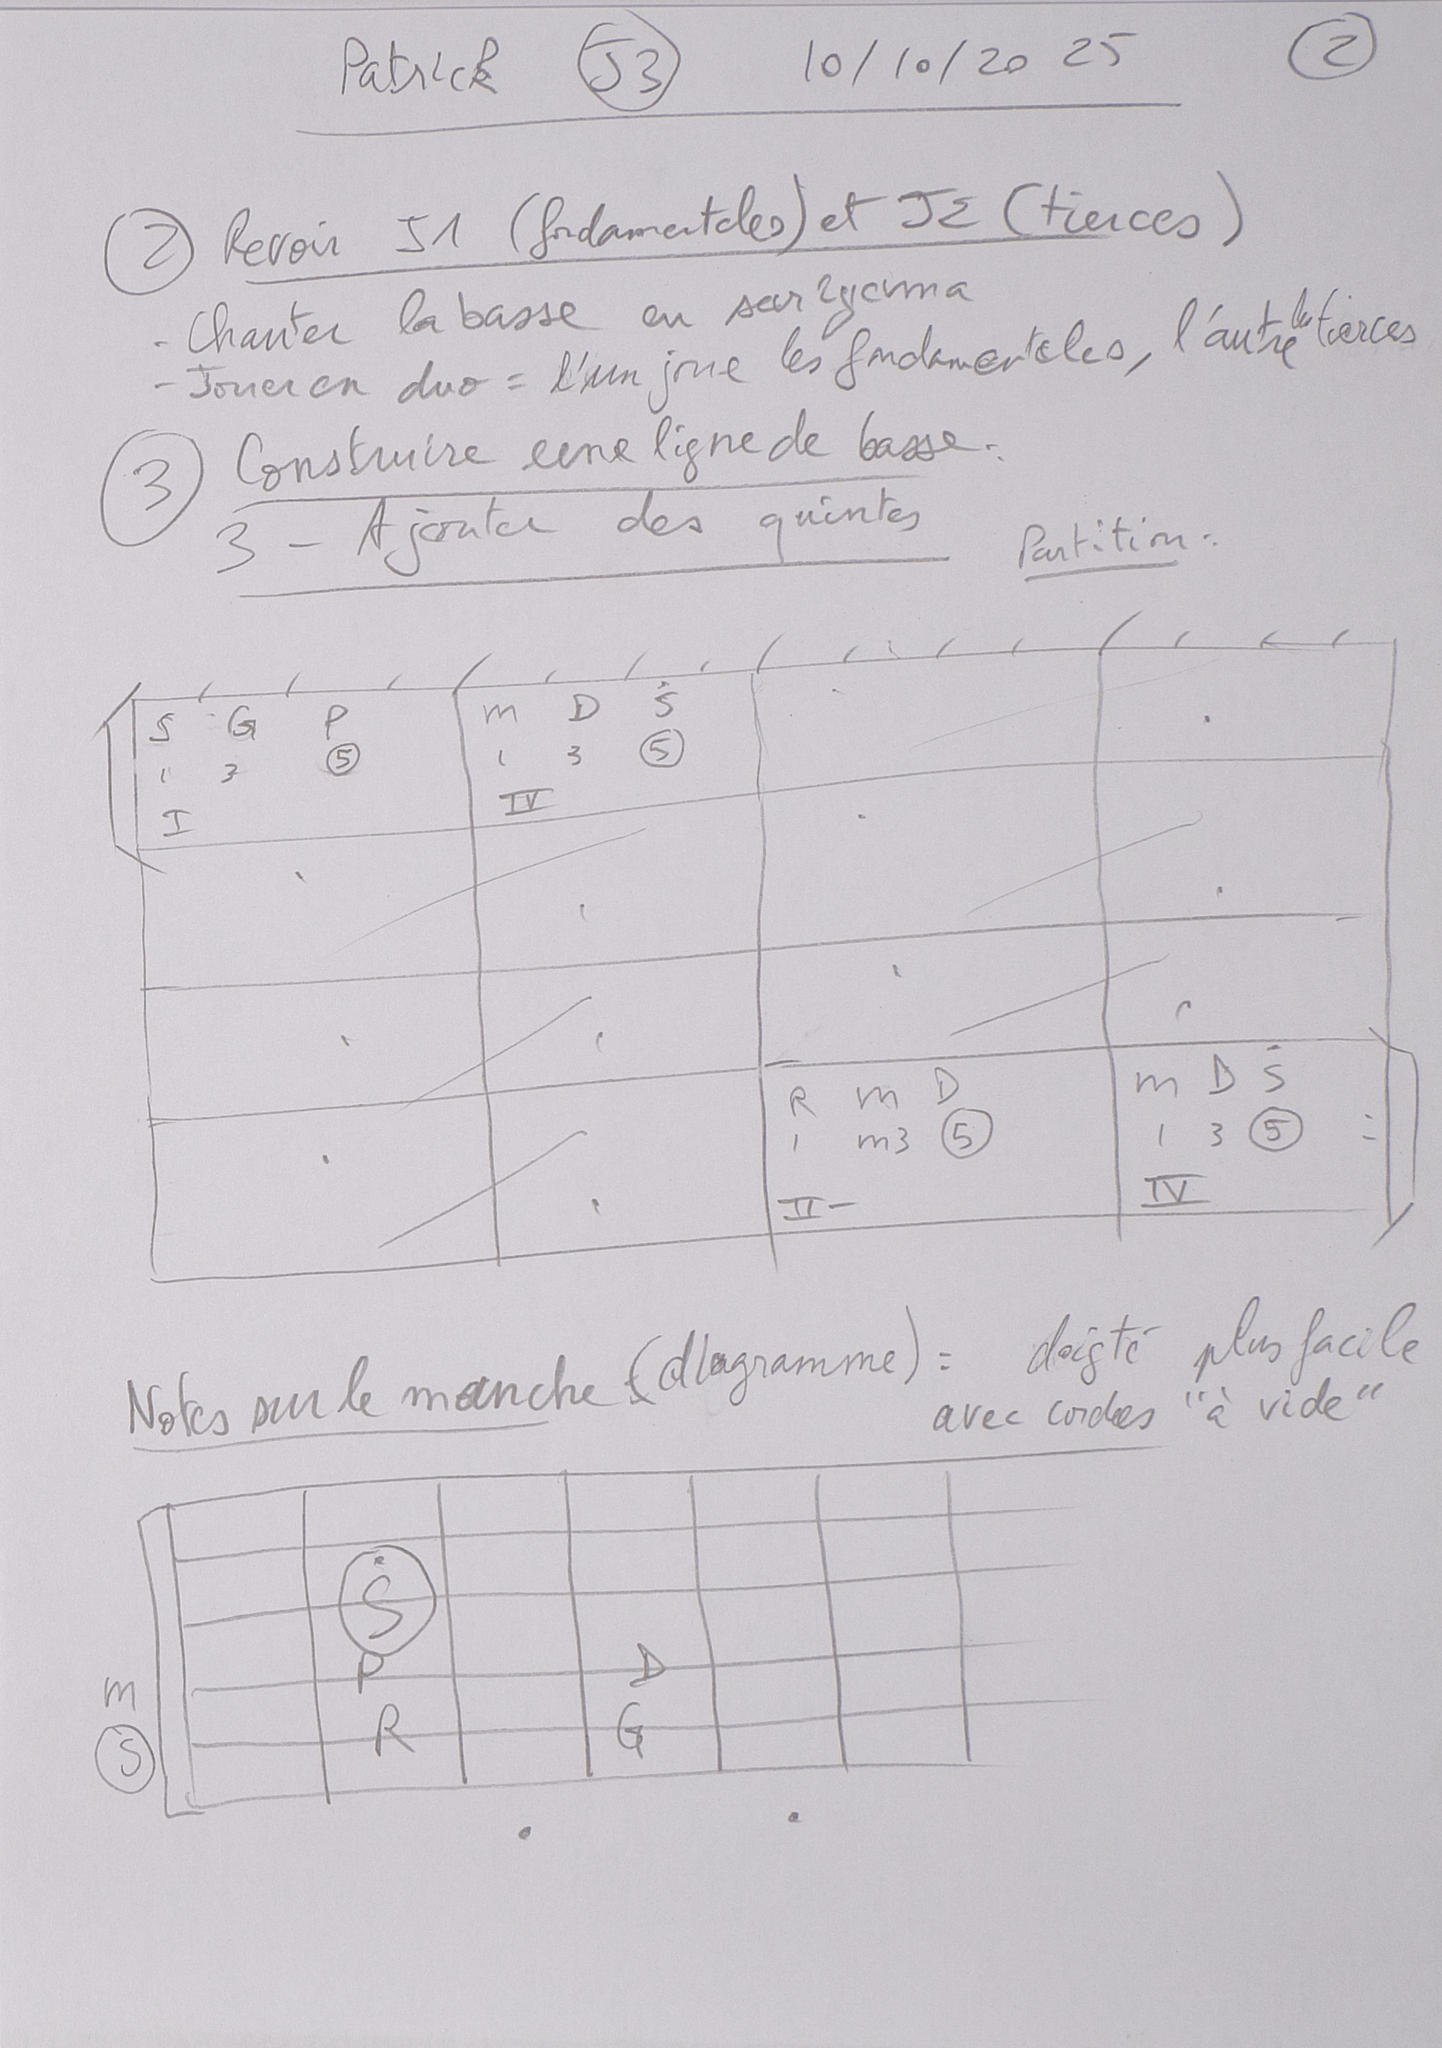 Patrick J3 10/10/2025 2
2 Revoir J1 (fondamentales) et J2 (tierces)
- Chanter la basse en sargama
- Jouer en duo = l'un joue les fondamentales, l'autre les tierces
3 Construire une ligne de basse :
3 - Ajouter des quintes
Partition :
S G P m D Ṡ
1 3 5 1 3 5
I IV
R m D m D Ṡ
1 m3 5 1 3 5 :
II- IV
Notes sur le manche (diagramme) = doigté plus facile
avec cordes "à vide"
Ṡ
P D
m
R G
S